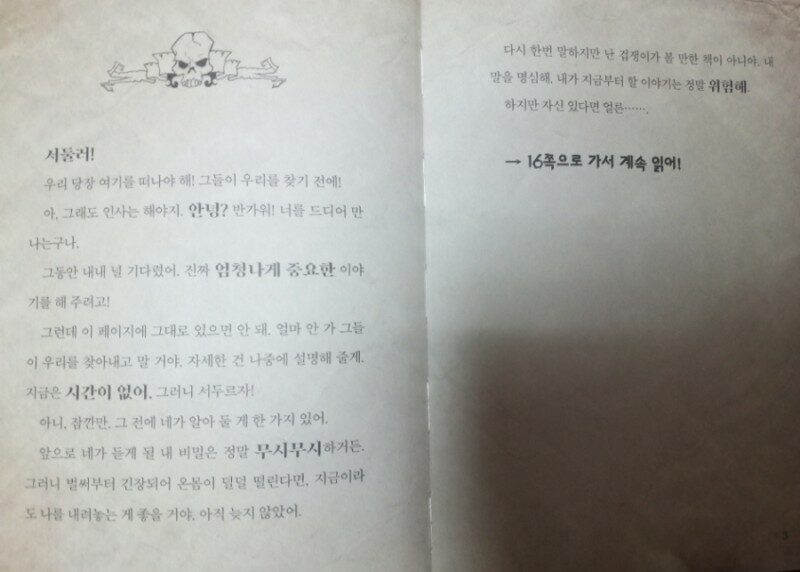 서둘러!
우리 당장 여기를 떠나야 해! 그들이 우리를 찾기 전에!
아, 그래도 인사는 해야지. 안녕? 반가워! 너를 드디어 만
나는구나.
그동안 내내 널 기다렸어. 진짜 엄청나게 중요한 이야
기를 해 주려고!
그런데 이 페이지에 그대로 있으면 안 돼. 얼마 안 가 그들
이 우리를 찾아내고 말 거야. 자세한 건 나중에 설명해 줄게.
지금은 시간이 없어. 그러니 서두르자!
아니, 잠깐만. 그 전에 네가 알아 둘 게 한 가지 있어.
앞으로 네가 듣게 될 내 비밀은 정말 무시무시하거든.
그러니 벌써부터 긴장되어 온몸이 덜덜 떨린다면, 지금이라
도 나를 내려놓는 게 좋을 거야. 아직 늦지 않았어.
다시 한번 말하지만 난 겁쟁이가 볼 만한 책이 아니야. 내
말을 명심해. 내가 지금부터 할 이야기는 정말 위험해.
하지만 자신 있다면 얼른…….
→ 16쪽으로 가서 계속 읽어!
3